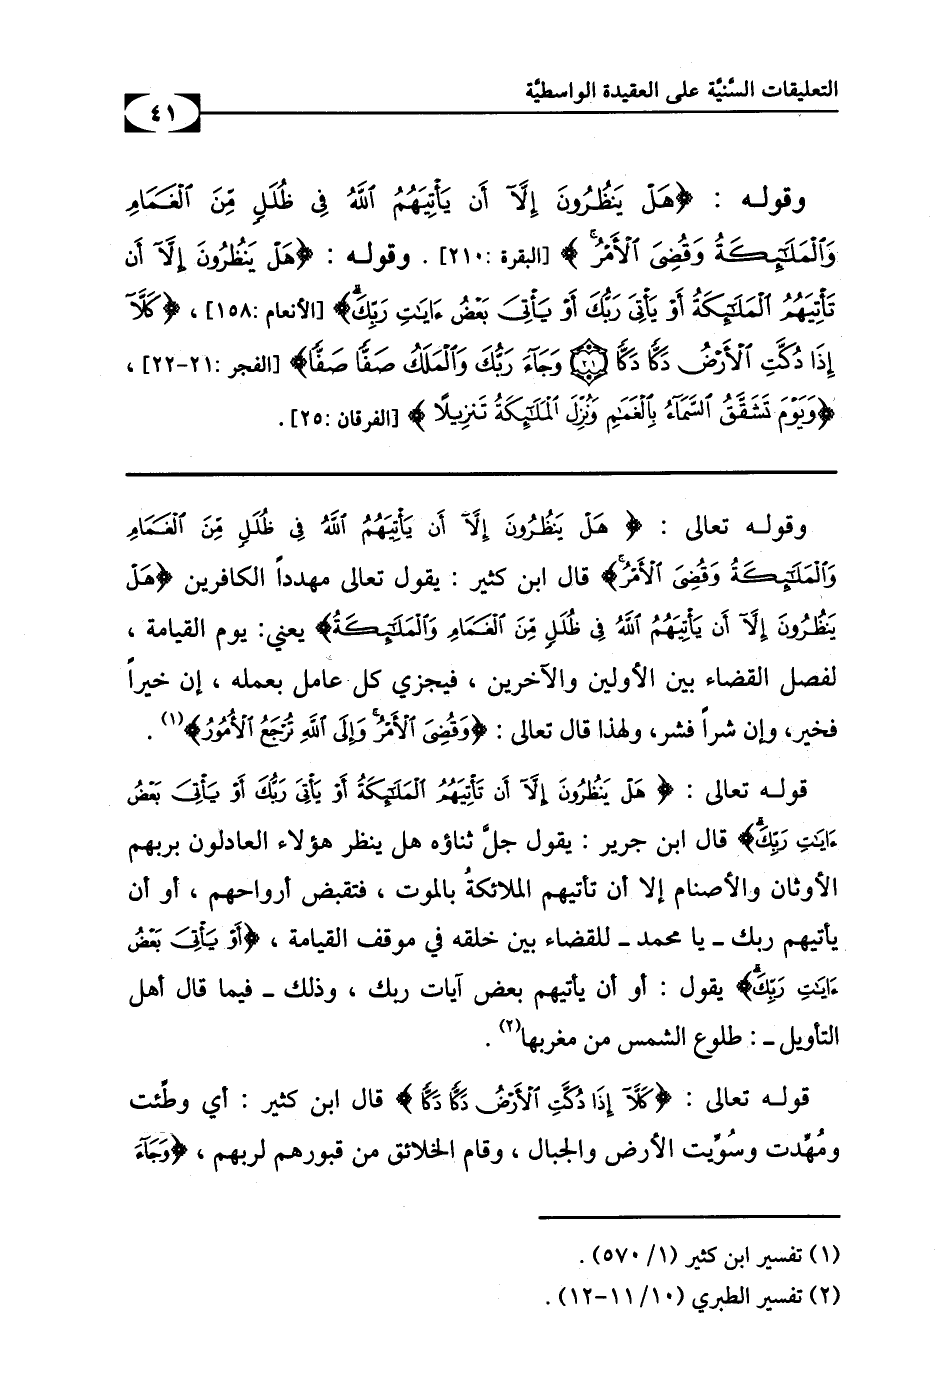 التعليقات السُّنيَّة على العقيدة الواسطيَّة
٤١
وقولـه : ﴿هَلْ يَنظُرُونَ إِلَّآ أَن يَأْتِيَهُمُ ٱللَّهُ فِى ظُلَلٍ مِّنَ ٱلْغَمَامِ
وَٱلْمَلَٰٓئِكَةُ وَقُضِىَ ٱلْأَمْرُ ۚ ﴾ [البقرة :٢١٠] . وقولـه : ﴿هَلْ يَنظُرُونَ إِلَّآ أَن
تَأْتِيَهُمُ ٱلْمَلَٰٓئِكَةُ أَوْ يَأْتِىَ رَبُّكَ أَوْ يَأْتِىَ بَعْضُ ءَايَٰتِ رَبِّكَ ۗ﴾ [الأنعام :١٥٨] ، ﴿كَلَّآ
إِذَا دُكَّتِ ٱلْأَرْضُ دَكًّا دَكًّا ٢١ وَجَآءَ رَبُّكَ وَٱلْمَلَكُ صَفًّا صَفًّا﴾ [الفجر :٢١-٢٢] ،
﴿وَيَوْمَ تَشَقَّقُ ٱلسَّمَآءُ بِٱلْغَمَٰمِ وَنُزِّلَ ٱلْمَلَٰٓئِكَةُ تَنزِيلًا ﴾ [الفرقان :٢٥] .
وقولـه تعالى : ﴿ هَلْ يَنظُرُونَ إِلَّآ أَن يَأْتِيَهُمُ ٱللَّهُ فِى ظُلَلٍ مِّنَ ٱلْغَمَامِ
وَٱلْمَلَٰٓئِكَةُ وَقُضِىَ ٱلْأَمْرُ ۚ﴾ قال ابن كثير : يقول تعالى مهدداً الكافرين ﴿هَلْ
يَنظُرُونَ إِلَّآ أَن يَأْتِيَهُمُ ٱللَّهُ فِى ظُلَلٍ مِّنَ ٱلْغَمَامِ وَٱلْمَلَٰٓئِكَةُ﴾ يعني: يوم القيامة ،
لفصل القضاء بين الأولين والآخرين ، فيجزي كل عامل بعمله ، إن خيراً
فخير، وإن شراً فشر، ولهذا قال تعالى : ﴿وَقُضِىَ ٱلْأَمْرُ ۚ وَإِلَى ٱللَّهِ تُرْجَعُ ٱلْأُمُورُ﴾(١) .
قولـه تعالى : ﴿ هَلْ يَنظُرُونَ إِلَّآ أَن تَأْتِيَهُمُ ٱلْمَلَٰٓئِكَةُ أَوْ يَأْتِىَ رَبُّكَ أَوْ يَأْتِىَ بَعْضُ
ءَايَٰتِ رَبِّكَ ۗ﴾ قال ابن جرير : يقول جلَّ ثناؤه هل ينظر هؤلاء العادلون بربهم
الأوثان والأصنام إلا أن تأتيهم الملائكةُ بالموت ، فتقبض أرواحهم ، أو أن
يأتيهم ربك ـ يا محمد ـ للقضاء بين خلقه في موقف القيامة ، ﴿أَوْ يَأْتِىَ بَعْضُ
ءَايَٰتِ رَبِّكَ ۗ﴾ يقول : أو أن يأتيهم بعض آيات ربك ، وذلك ـ فيما قال أهل
التأويل ـ : طلوع الشمس من مغربها(٢) .
قولـه تعالى : ﴿كَلَّآ إِذَا دُكَّتِ ٱلْأَرْضُ دَكًّا دَكًّا ﴾ قال ابن كثير : أي وطِّئت
ومُهِّدت وسُوِّيت الأرض والجبال ، وقام الخلائق من قبورهم لربهم ، ﴿وَجَآءَ
(١) تفسير ابن كثير (١/ ٥٧٠) .
(٢) تفسير الطبري (١٠/ ١١-١٢) .